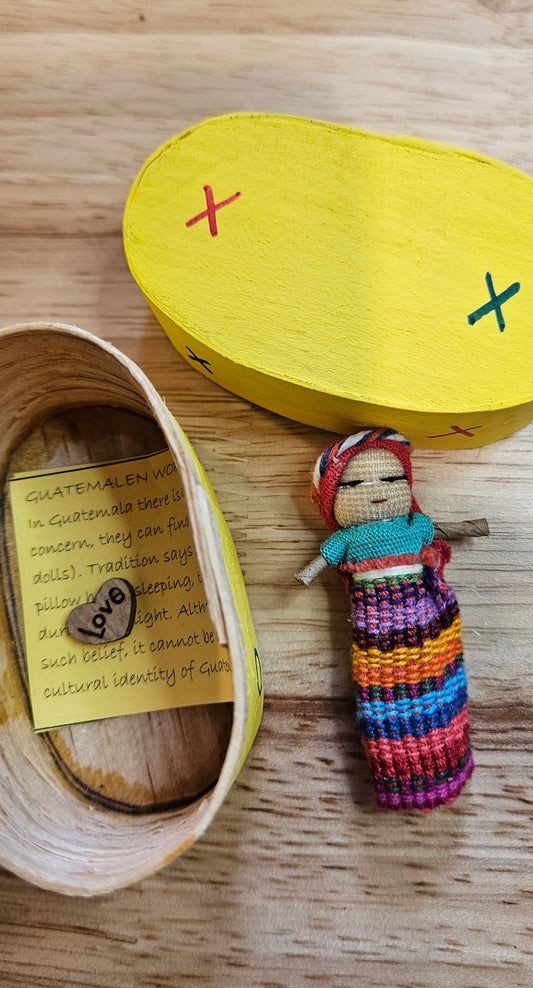 GUATEMALEN WO
In Guatemala there is
concern, they can find
dolls). Tradition says
pillow sleeping,
light. Alth
such belief, it cannot be
cultural identity of Gua
Love